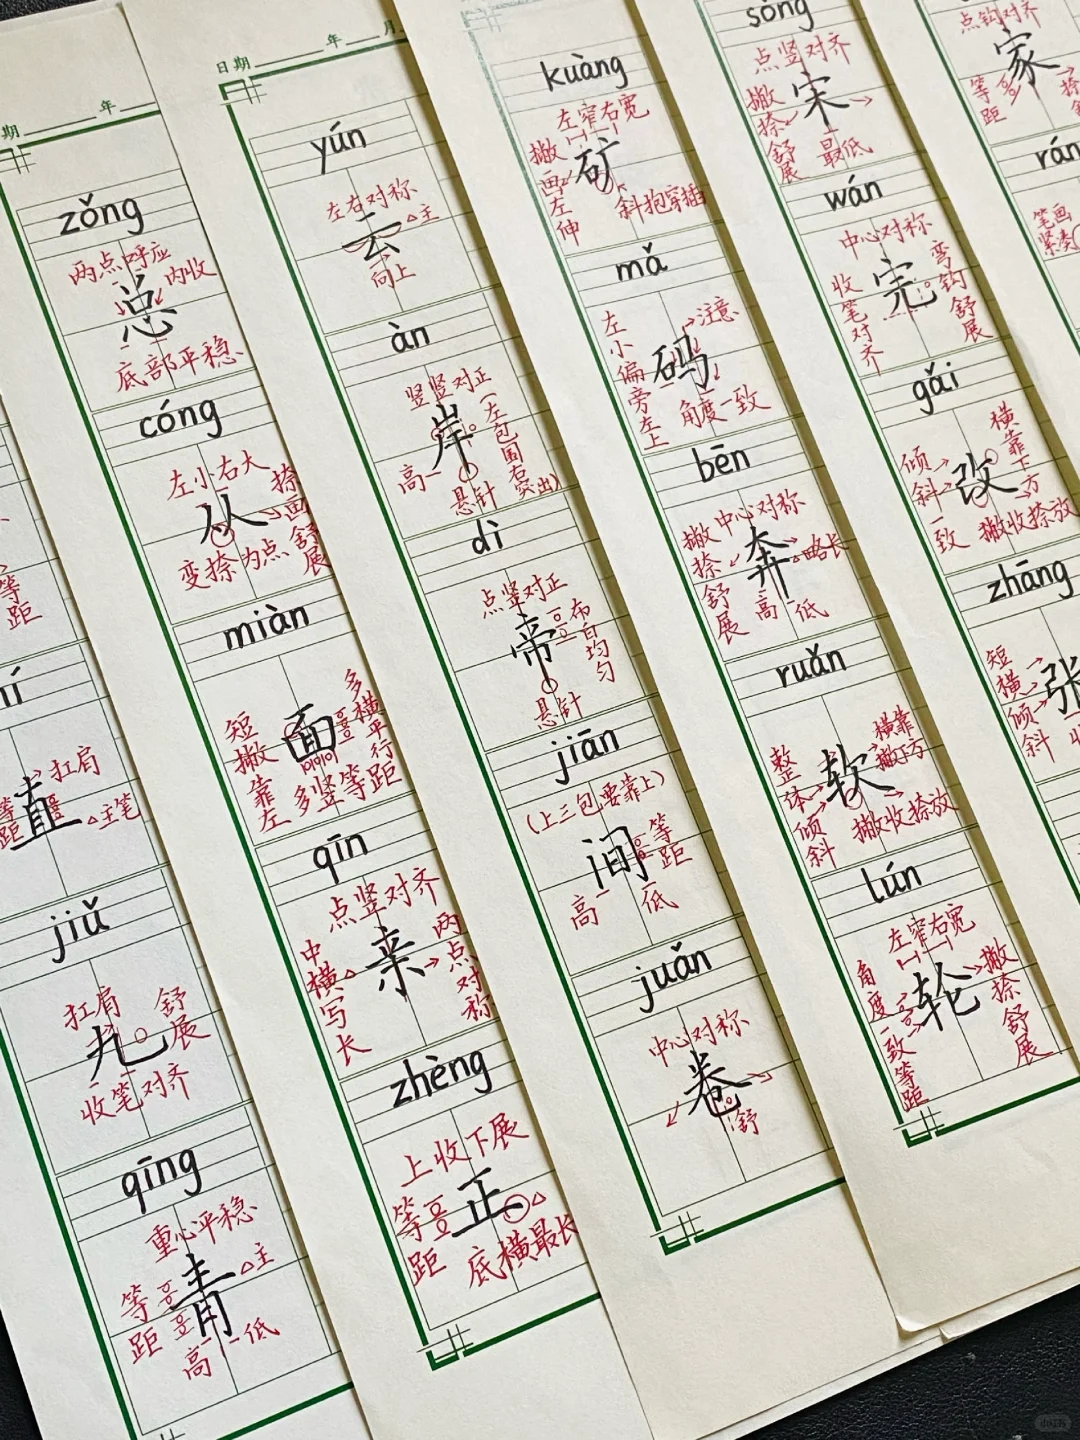 期 年
等
距
直
扛肩
等距
△主笔
jiǔ
扛肩
舒展
九
收笔对齐
qīng
重心平稳
青
△主
等距
高 低
zǒng
两点呼应
内收
总
底部平稳
cóng
左小右大
从
捺画舒展
变捺为点
miàn
面
短撇靠左
多横平行
多竖等距
qīn
点竖对齐
亲
中横写长
两点对称
zhèng
上收下展
正
等距
底横最长
日期 年 月
yún
左右对称
云
△主
向上
àn
竖竖对正
岸
(左包围右突出)
高
悬针
dì
点竖对正
帝
布白均匀
悬针
jiān
(上三包要靠上)
间
等距
高 低
juǎn
中心对称
卷
舒
kuàng
左窄右宽
矿
撇画左伸
斜抱穿插
mǎ
码
注意
左小偏旁左上
角度一致
bēn
中心对称
奔
撇捺舒展
略长
高 低
ruǎn
软
整体倾斜
横靠撇下方
撇收捺放
lún
左窄右宽
轮
角度一致等距
撇捺舒展
sòng
点竖对齐
宋
撇捺舒展
最低
wán
中心对称
完
收笔对齐
弯钩舒展
gǎi
改
倾斜一致
横靠下方
撇收捺放
zhāng
张
短横倾斜
点钩对齐
家
等距
rán
笔画